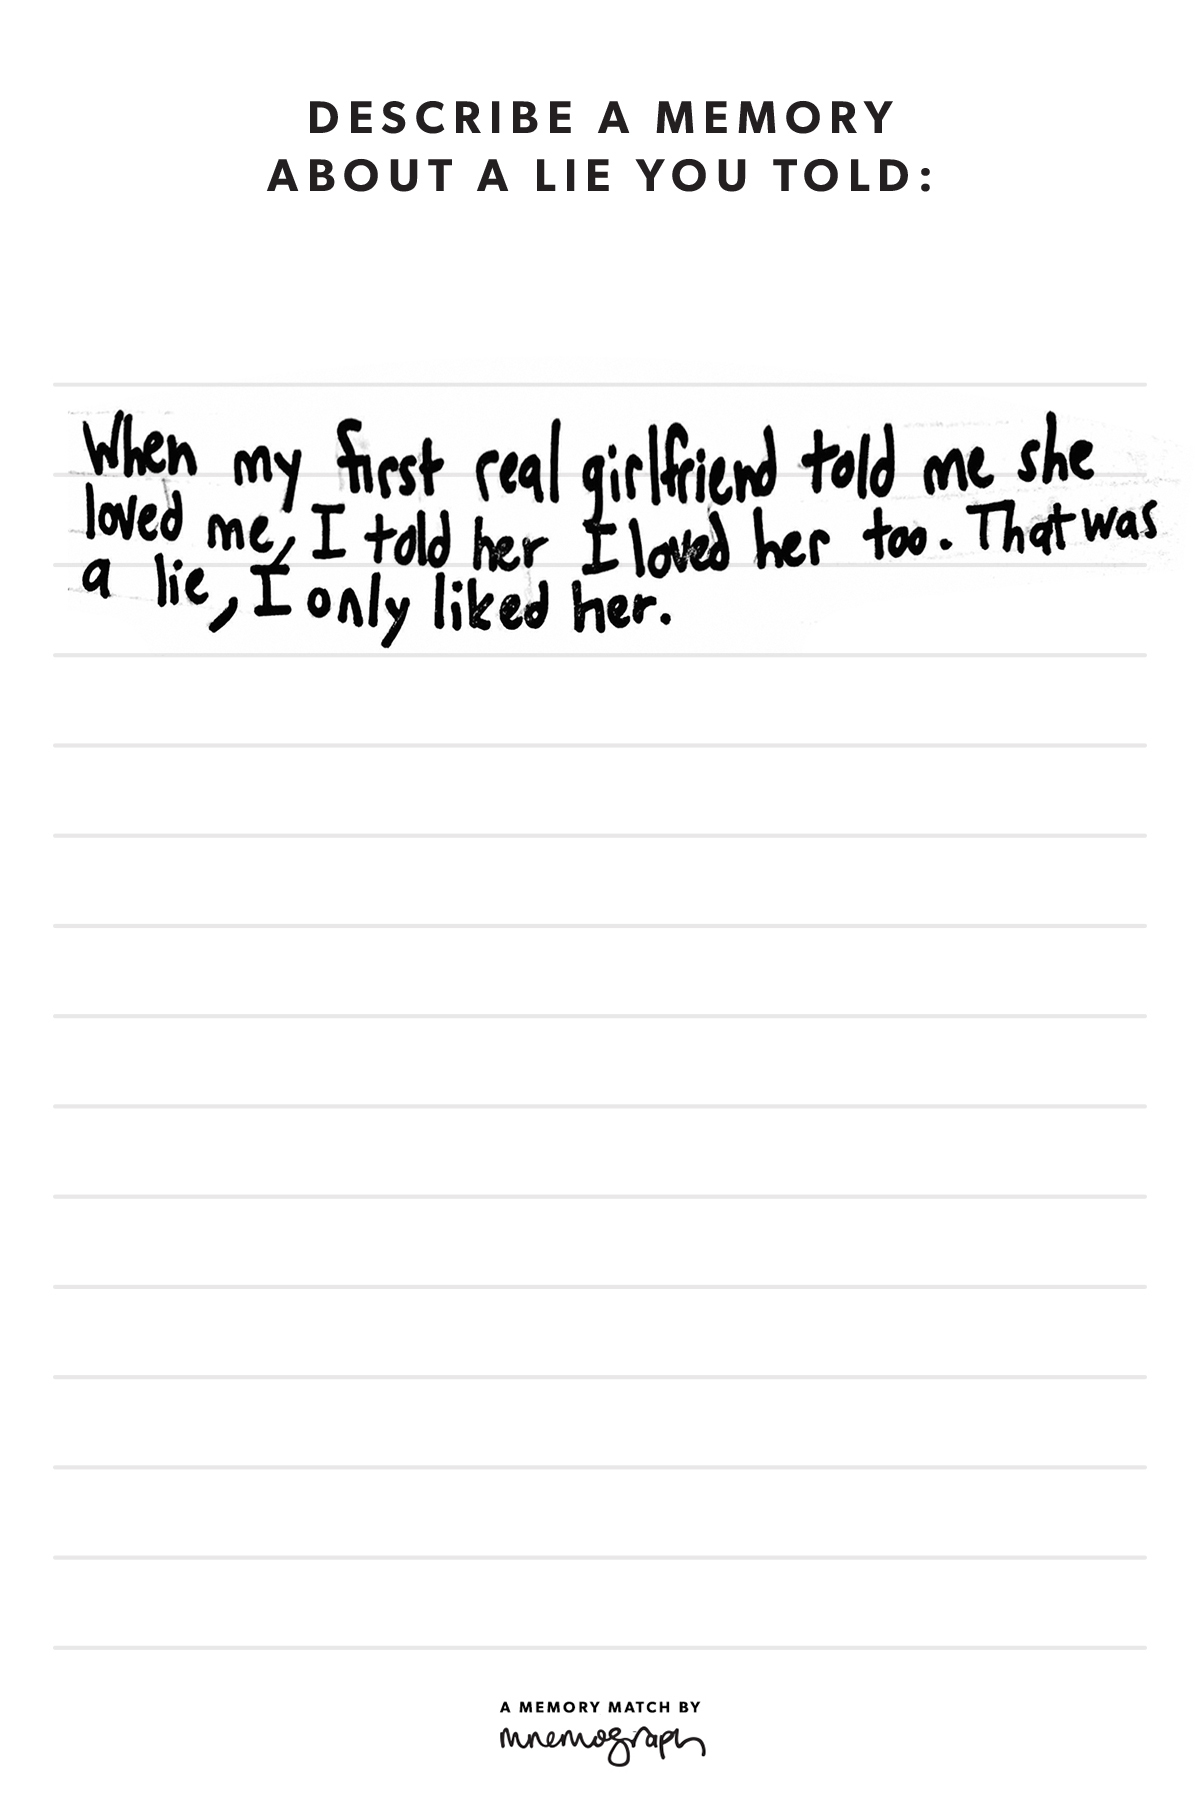 DESCRIBE A MEMORY
ABOUT A LIE YOU TOLD:
When my first real girlfriend told me she
loved me, I told her I loved her too. That was
a lie, I only liked her.
A MEMORY MATCH BY
mnemograph